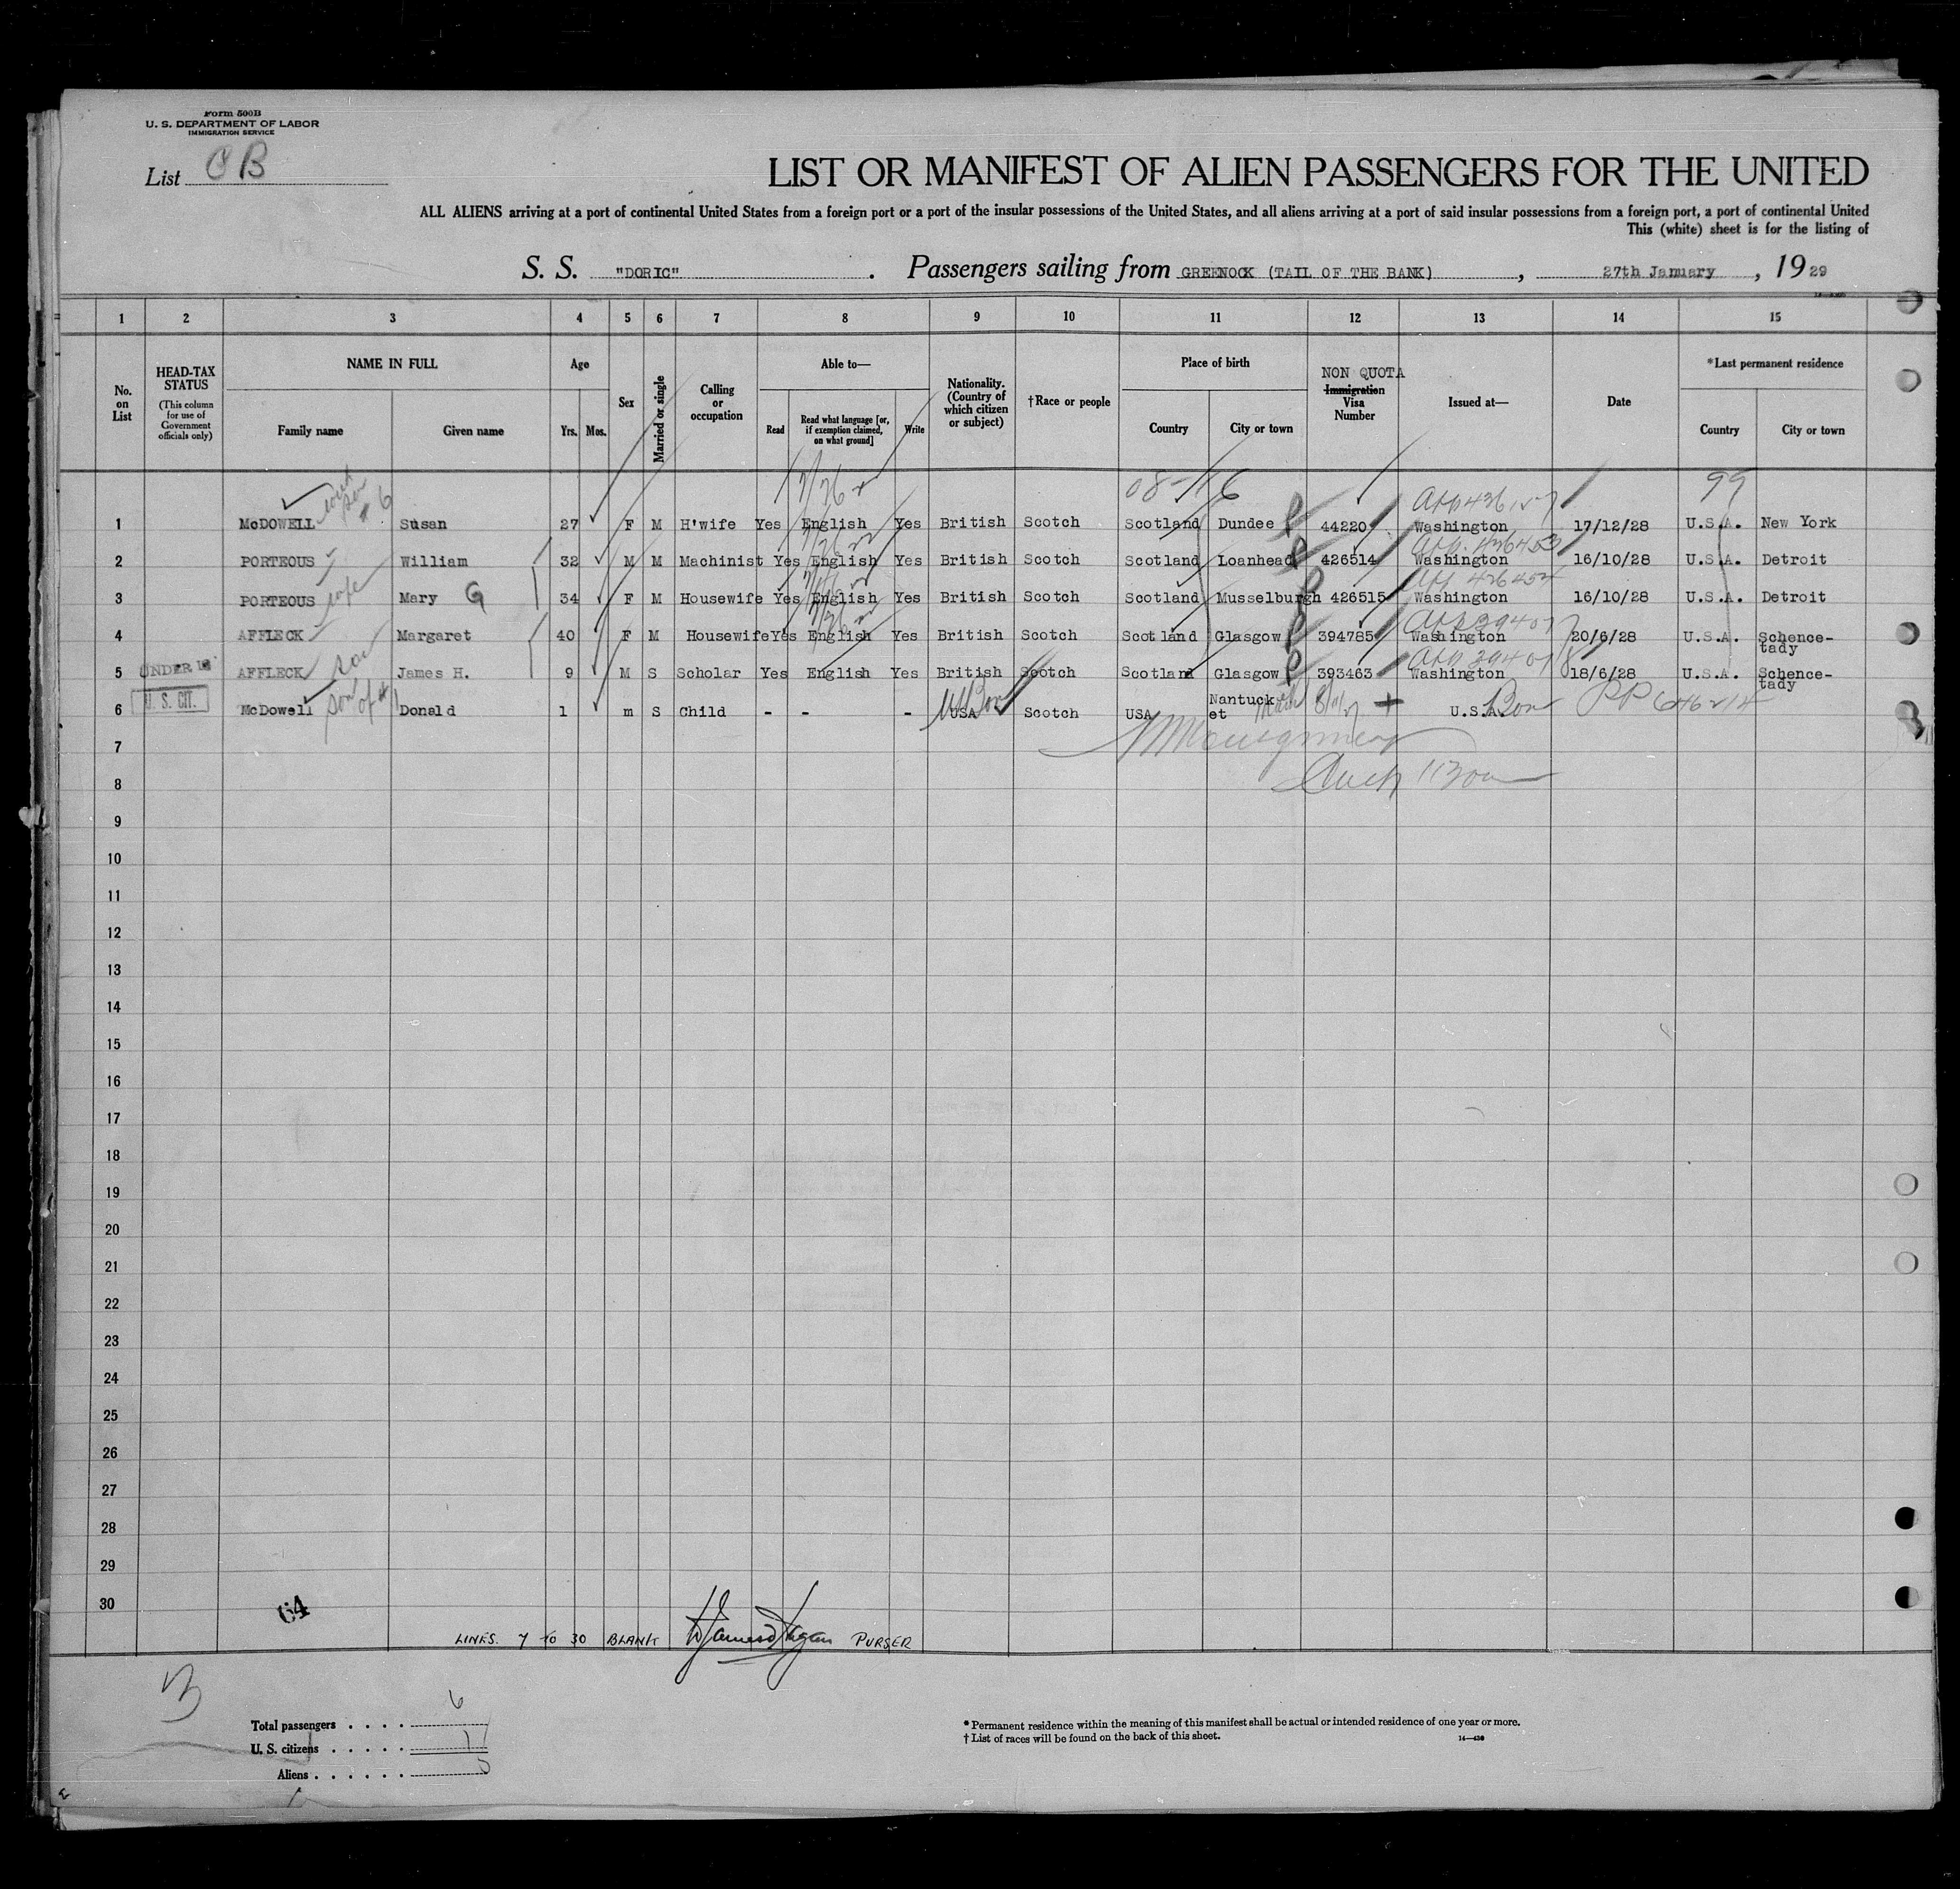 Form 500B
U. S. DEPARTMENT OF LABOR
IMMIGRATION SERVICE
List CB
LIST OR MANIFEST OF ALIEN PASSENGERS FOR THE UNITED
ALL ALIENS arriving at a port of continental United States from a foreign port or a port of the insular possessions of the United States, and all aliens arriving at a port of said insular possessions from a foreign port, a port of continental United
This (white) sheet is for the listing of
S. S. "DORIC" . Passengers sailing from GREENOCK (TAIL OF THE BANK) , 27th January , 1929
1 2 3 4 5 6 7 8 9 10 11 12 13 14 15
No. on List
HEAD-TAX STATUS
(This column for use of Government officials only)
NAME IN FULL
Family name Given name
Age
Yrs. Mos.
Sex
Married or single
Calling or occupation
Able to—
Read
Read what language [or, if exemption claimed, on what ground]
Write
Nationality. (Country of which citizen or subject)
†Race or people
Place of birth
Country City or town
NON QUOTA
Immigration Visa Number
Issued at—
Date
*Last permanent residence
Country City or town
with son # 6 08-116 99
1 McDOWELL Susan 27 F M H'wife Yes English Yes British Scotch Scotland Dundee 44220 Washington 17/12/28 U.S.A. New York
2 PORTEOUS William 32 M M Machinist Yes English Yes British Scotch Scotland Loanhead 426514 Washington 16/10/28 U.S.A. Detroit
3 PORTEOUS wife Mary G 34 F M Housewife Yes English Yes British Scotch Scotland Musselburgh 426515 Washington 16/10/28 U.S.A. Detroit
4 AFFLECK Margaret 40 F M Housewife Yes English Yes British Scotch Scotland Glasgow 394785 Washington 20/6/28 U.S.A. Schenectady
5 UNDER 16 AFFLECK son James H. 9 M S Scholar Yes English Yes British Scotch Scotland Glasgow 393463 Washington 18/6/28 U.S.A. Schenectady
6 U. S. CIT. McDowell son of #1 Donald 1 m S Child - - - USA Scotch USA Nantucket U.S.A. PP 646214
7
8
9
10
11
12
13
14
15
16
17
18
19
20
21
22
23
24
25
26
27
28
29
30
64
LINES 7 TO 30 BLANK PURSER
Total passengers . . . . 6
U. S. citizens . . . . . 1
Aliens . . . . . . 5
* Permanent residence within the meaning of this manifest shall be actual or intended residence of one year or more.
† List of races will be found on the back of this sheet.
14—430